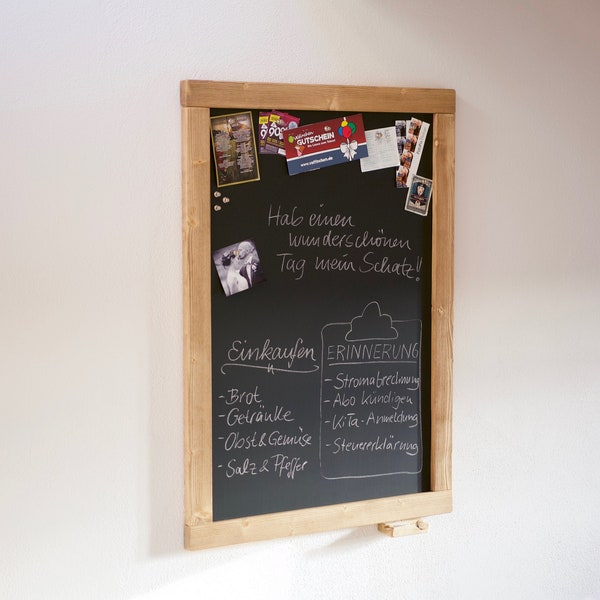 GUTSCHEIN
Hab einen
wunderschönen
Tag mein Schatz!!
Einkaufen
- Brot
- Getränke
- Obst & Gemüse
- Salz & Pfeffer
ERINNERUNG
- Stromabrechnung
- Abo kündigen
- KiTa-Anmeldung
- Steuererklärung